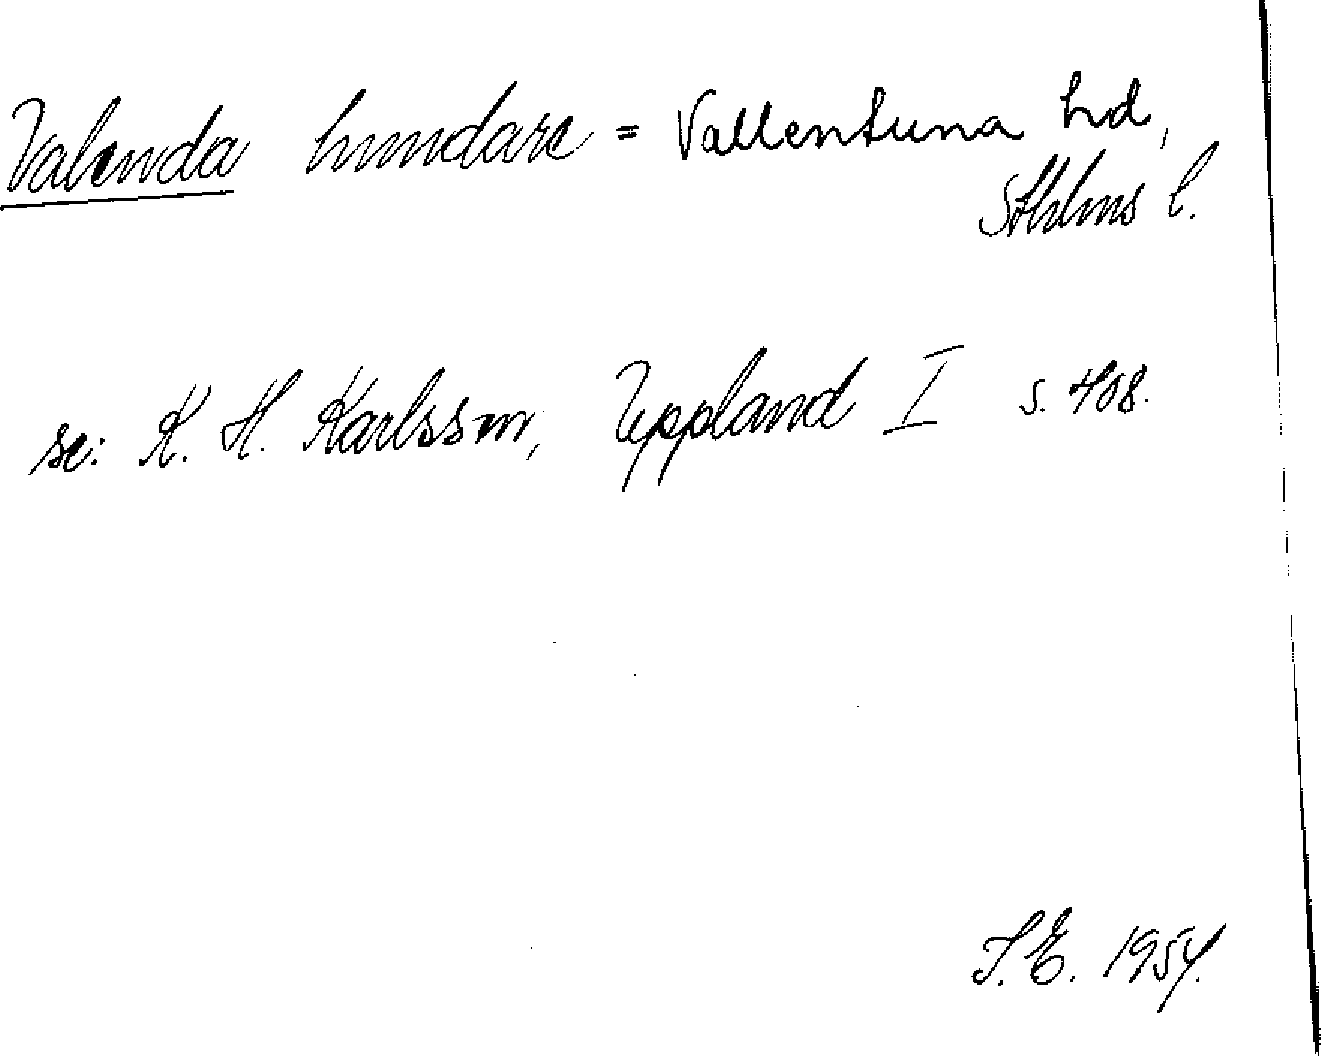 Valenda hundare = Vallentuna hd,
Sthlms l.
se: K. H. Karlsson, Uppland I s. 408.
S.E. 1954.